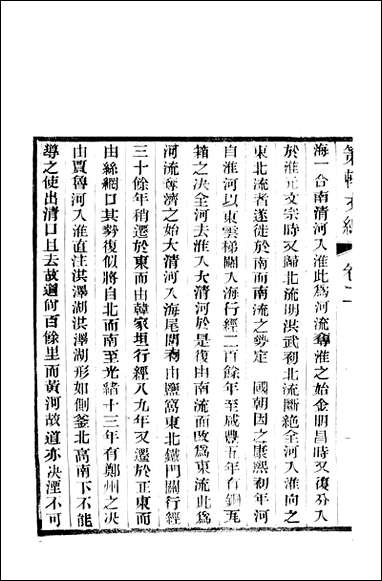 策軒文編 卷二
海一合南清河入淮此為河流奪淮之始金明昌時又復分入
於淮元文宗時又歸北流明洪武初北流斷絕全河入淮向之
東北流者遂徙於南而南流之勢定　國朝因之康熙初年河
自淮河以東雲梯關入海行經二百餘年至咸豐五年有銅瓦
箱之决全河去淮入大清河於是復由南流而改為東流此為
河流奪濟之始大清河入海尾閭初由鹽窩東北鐵門關行經
三十餘年稍遷於東而由韓家垣行經八九年又遷於正東而
由絲網口其勢復似將自北而南至光緒十三年有鄭州之决
由賈魯河入淮直注洪澤湖洪澤湖形如側釜北高南下不能
導之使出清口且去故道何百餘里而黃河故道亦决湮不可